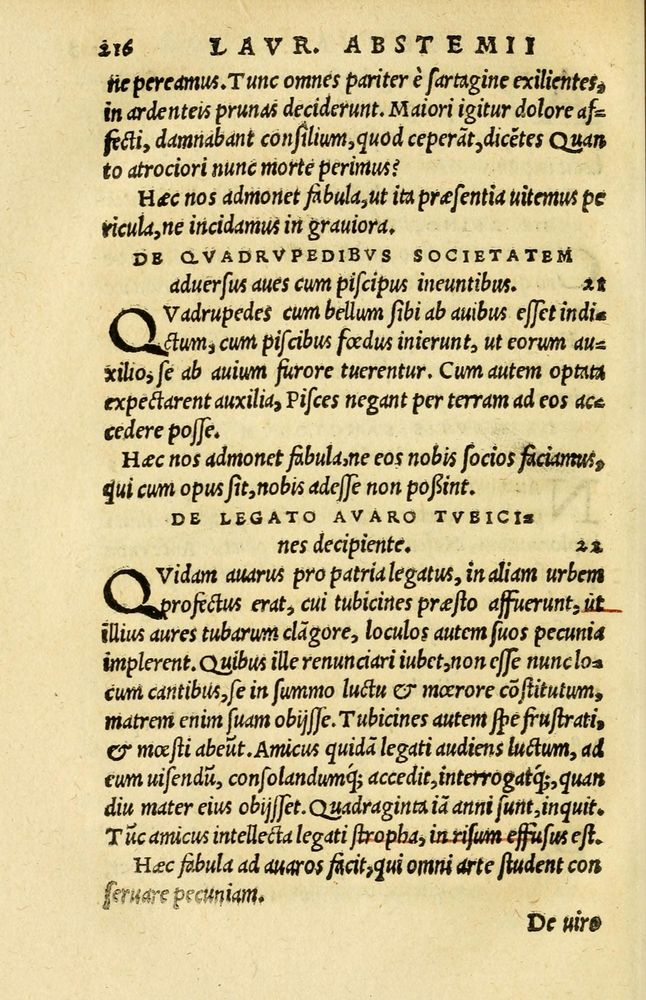 216 LAVR. ABSTEMII
ne pereamus. Tunc omnes pariter è sartagine exilientes,
in ardenteis prunas deciderunt. Maiori igitur dolore af-
fecti, damnabant consilium, quod ceperãt, dicẽtes Quan
to atrociori nunc morte perimus?
Hæc nos admonet fabula, ut ita præsentia uitemus pe
ricula, ne incidamus in grauiora.
DE QVADRVPEDIBVS SOCIETATEM
aduersus aues cum piscipus ineuntibus. 21
QVadrupedes cum bellum sibi ab auibus esset indi-
ctum, cum piscibus fœdus inierunt, ut eorum au-
xilio, se ab auium furore tuerentur. Cum autem optata
expectarent auxilia, Pisces negant per terram ad eos ac-
cedere posse.
Hæc nos admonet fabula, ne eos nobis socios faciamus,
qui cum opus sit, nobis adesse non poßint.
DE LEGATO AVARO TVBICI-
nes decipiente. 22
QVidam auarus pro patria legatus, in aliam urbem
profectus erat, cui tubicines præsto affuerunt, ut
illius aures tubarum clãgore, loculos autem suos pecunia
implerent. Quibus ille renunciari iubet, non esse nunc lo-
cum cantibus, se in summo luctu & mœrore cõstitutum,
matrem enim suam obijsse. Tubicines autem spe frustrati,
& mœsti abeũt. Amicus quidã legati audiens luctum, ad
eum uisendũ, consolandumq́; accedit, interrogatq́;, quan
diu mater eius obijsset. Quadraginta iã anni sunt, inquit.
Tũc amicus intellecta legati stropha, in risum effusus est.
Hæc fabula ad auaros facit, qui omni arte student con
seruare pecuniam.
De uiro